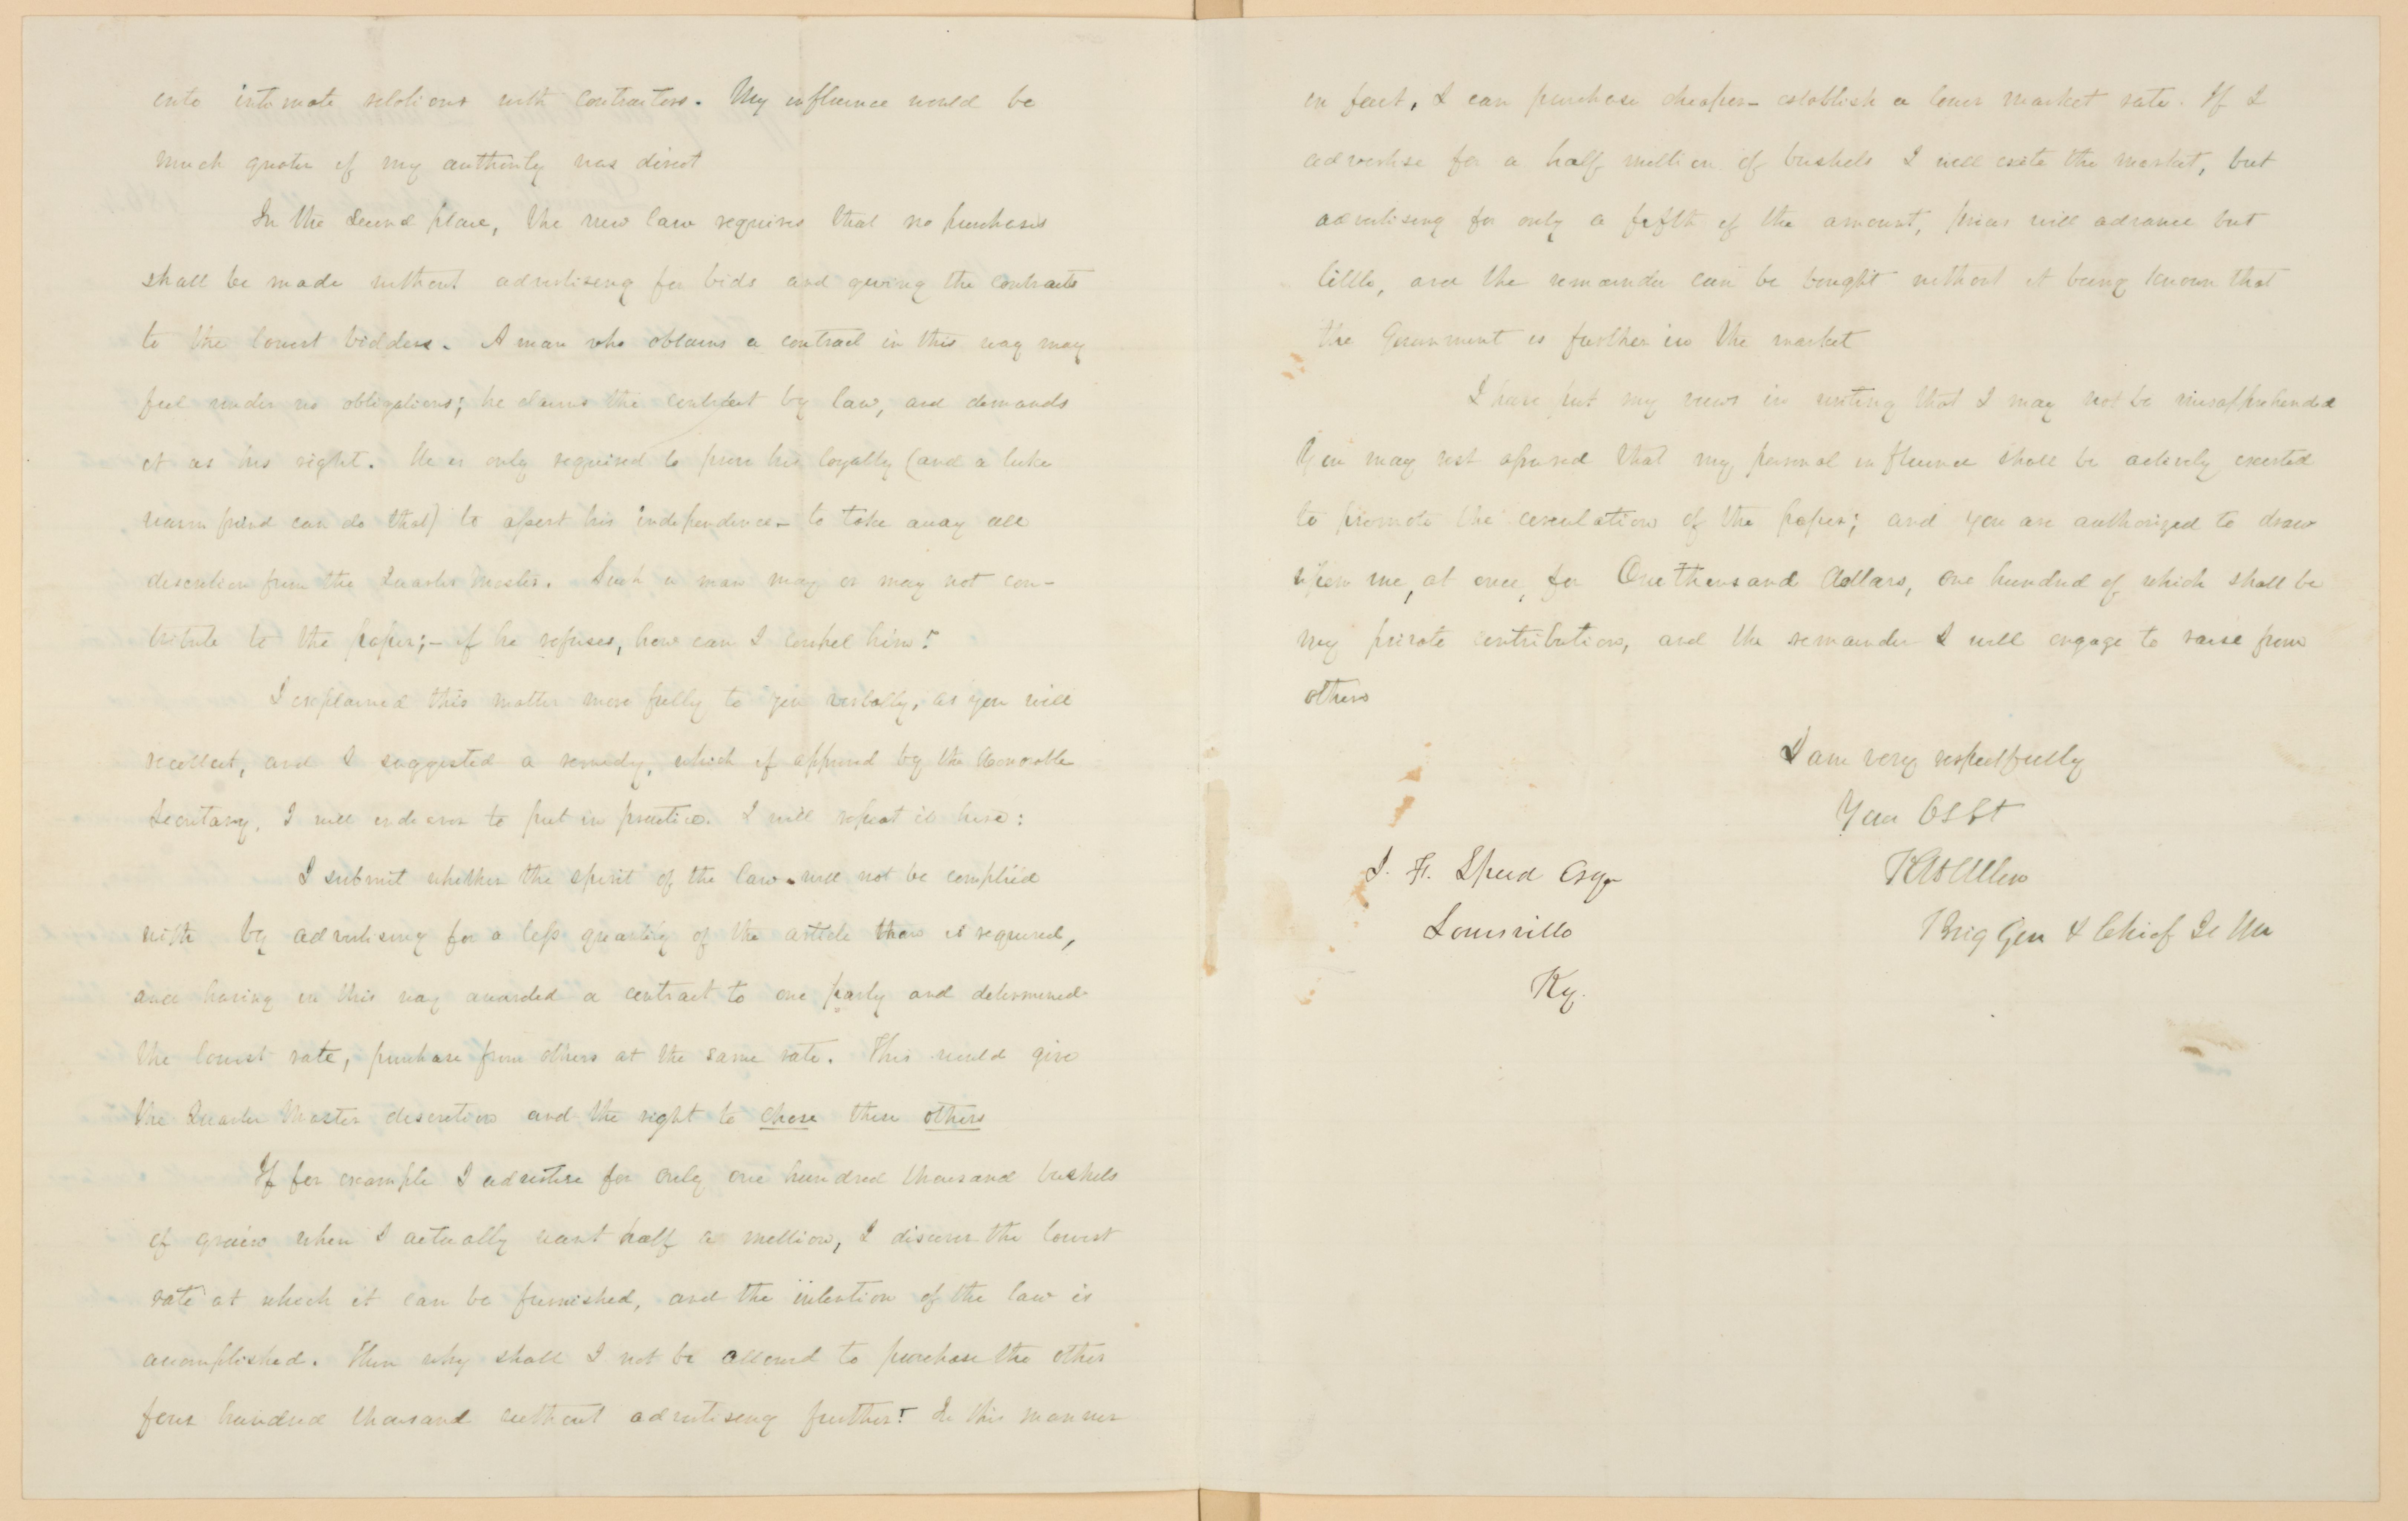 into intimate relations with contractors. My influence would be
much greater if my authority was direct
In the second place, the new law requires that no purchases
shall be made without advertising for bids and giving the contracts
to the lowest bidders. A man who obtains a contract in this way may
feel under no obligations; he claims the contract by law, and demands
it as his right. He is only required to prove his loyalty (and a luke
warm friend can do that) to assert his independence - to take away all
discretion from the Quarter Master. Such a man may or may not con-
tribute to the paper; - if he refuses, how can I compel him?
I explained this matter more fully to you verbally, as you will
recollect, and I suggested a remedy, which if approved by the Honorable
Secretary, I will endeavor to put in practice. I will repeat it here:
I submit whether the spirit of the law will not be complied
with by advertising for a less quantity of the article than is required,
and having in this way awarded a contract to one party and determined
the lowest rate, purchase from others at the same rate. This would give
the Quarter Master discretion and the right to chose these others
If for example I advertise for only one hundred thousand bushels
of grain when I actually want half a million, I discover the lowest
rate at which it can be furnished, and the intention of the law is
accomplished. Then why shall I not be allowed to purchase the other
four hundred thousand without advertising further? In this manner
in fact, I can purchase cheaper - establish a lower market rate. If I
advertise for a half million of bushels I will excite the market, but
advertising for only a fifth of the amount, prices will advance but
little, and the remainder can be bought without it being known that
the Government is further in the market
I have put my views in writing that I may not be misapprehended
You may rest assured that my personal influence shall be actively exerted
to promote the circulation of the paper; and you are authorized to draw
upon me, at once, for One Thousand dollars, one hundred of which shall be
my private contribution, and the remainder I will engage to raise from
others
I am very respectfully
Your Obt St
R Allen
Brig Gen & Chief Q M
J. F. Speed Esqr
Louisville
Ky.